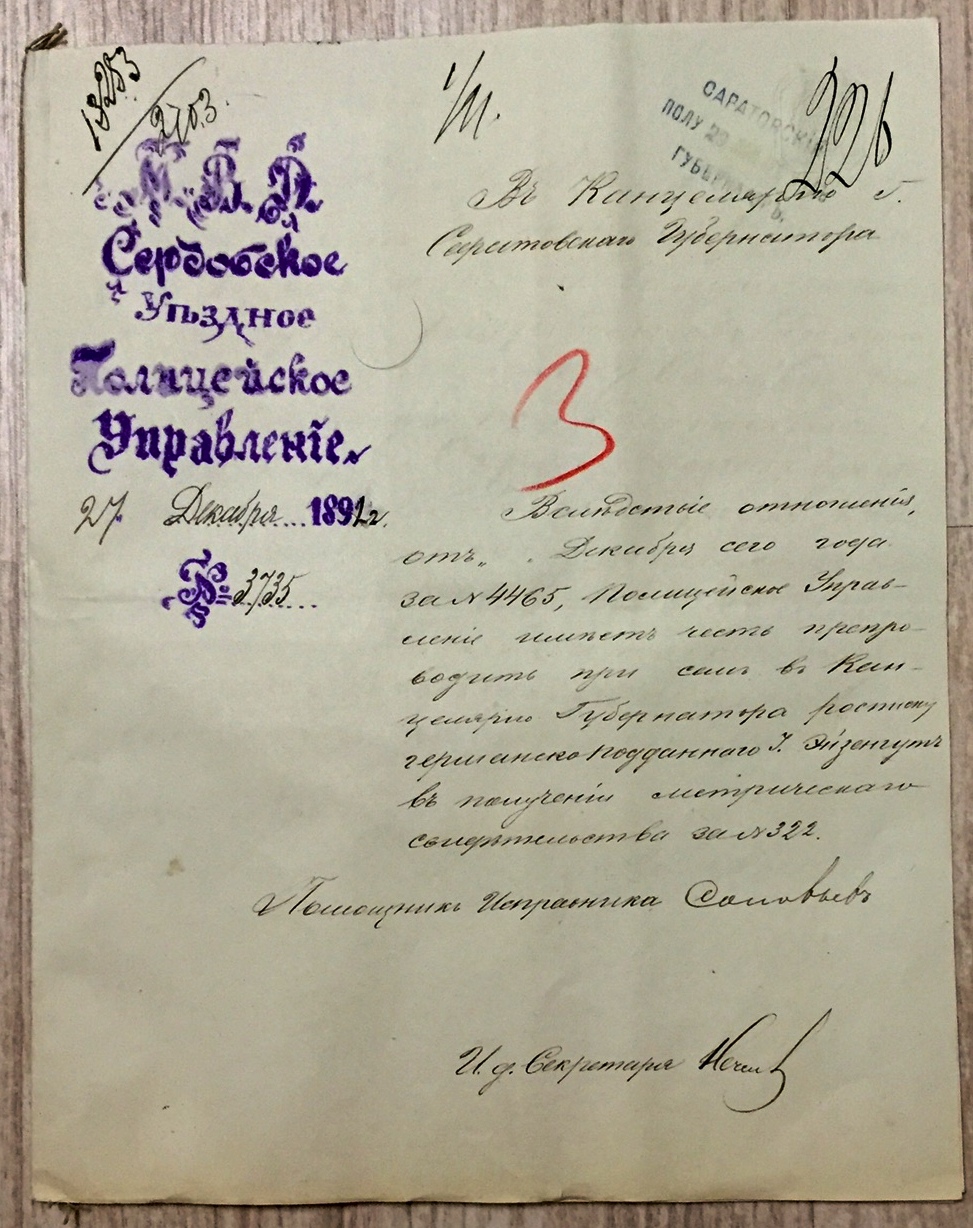 13253
2703.
1/III.
226
САРАТОВСКІЙ
ПОЛУ 29
ГУБЕР
М. В. Д.
Сердобское
Уѣздное
Полицейское
Управленіе.
27 Декабря 1892 г.
№ 3735
Въ Канцелярію г.
Саратовскаго Губернатора
3
Вслѣдствіе отношенія,
отъ „ Декабря сего года
за № 4465, Полицейское Управ-
леніе имѣетъ честь препро-
водить при семъ въ Кан-
целярію Губернатора росписку
германско подданнаго І. Эйзенгутъ
въ полученіи метрическаго
свидѣтельства за № 322.
Помощникъ Исправника Соловьевъ
И. д. Секретаря